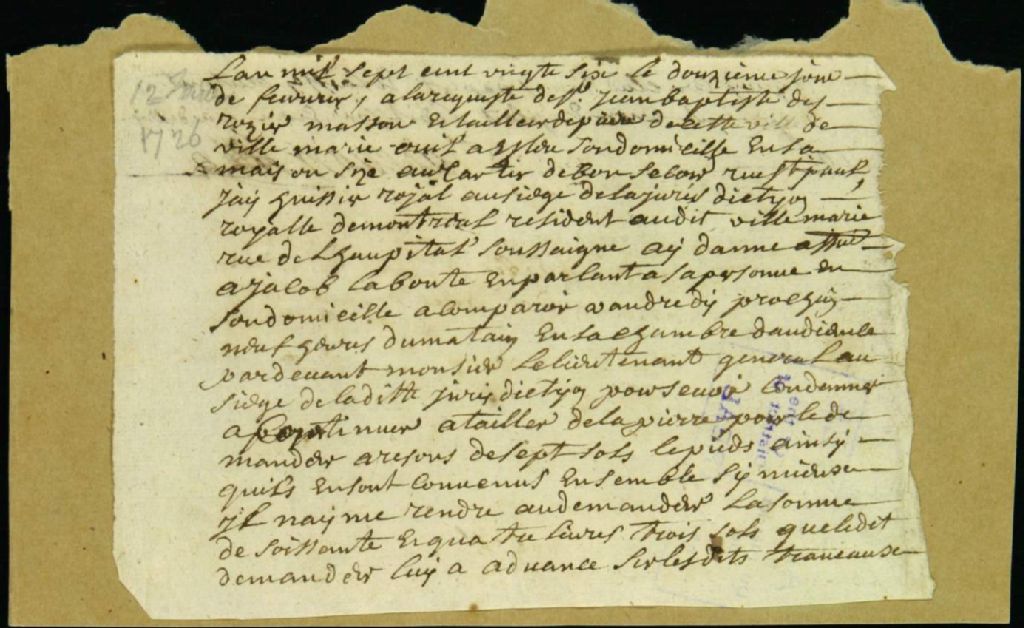 12 
1726
Lan mil sept cent vingte six le douzieme jour
de fevurier, alarequeste de sr jean baptiste des
rozier masson Et tailleur de piere de cette ville de
ville marie ouil a Eslu son domicille En sa
maison size au Cartier de bon secour rue st paul,
jay huissier royal au siege de la juris diction
royalle de montreal resident audit ville marie
rue de Lhaupital soussaigne ay donne
a jacob La bonte En parlant a sa personne en
son domicille a Comparoir vandredy prochain
neuf heures du matain En La chambre daudience
par devant monsieur Le lieutenant general au
siege de la ditte juris diction pour se voir Condanner
a Continuer a tailler de la pierre pour le de
mandeur a resons de sept sols le pieds ainsy
quils En sont Convenus Ensemble sy mieux
yl nayme rendre au demandeur La somme
de soissante Et quatre livres trois sols que ledit
demandeur luy a advance sur lesdits traveaux